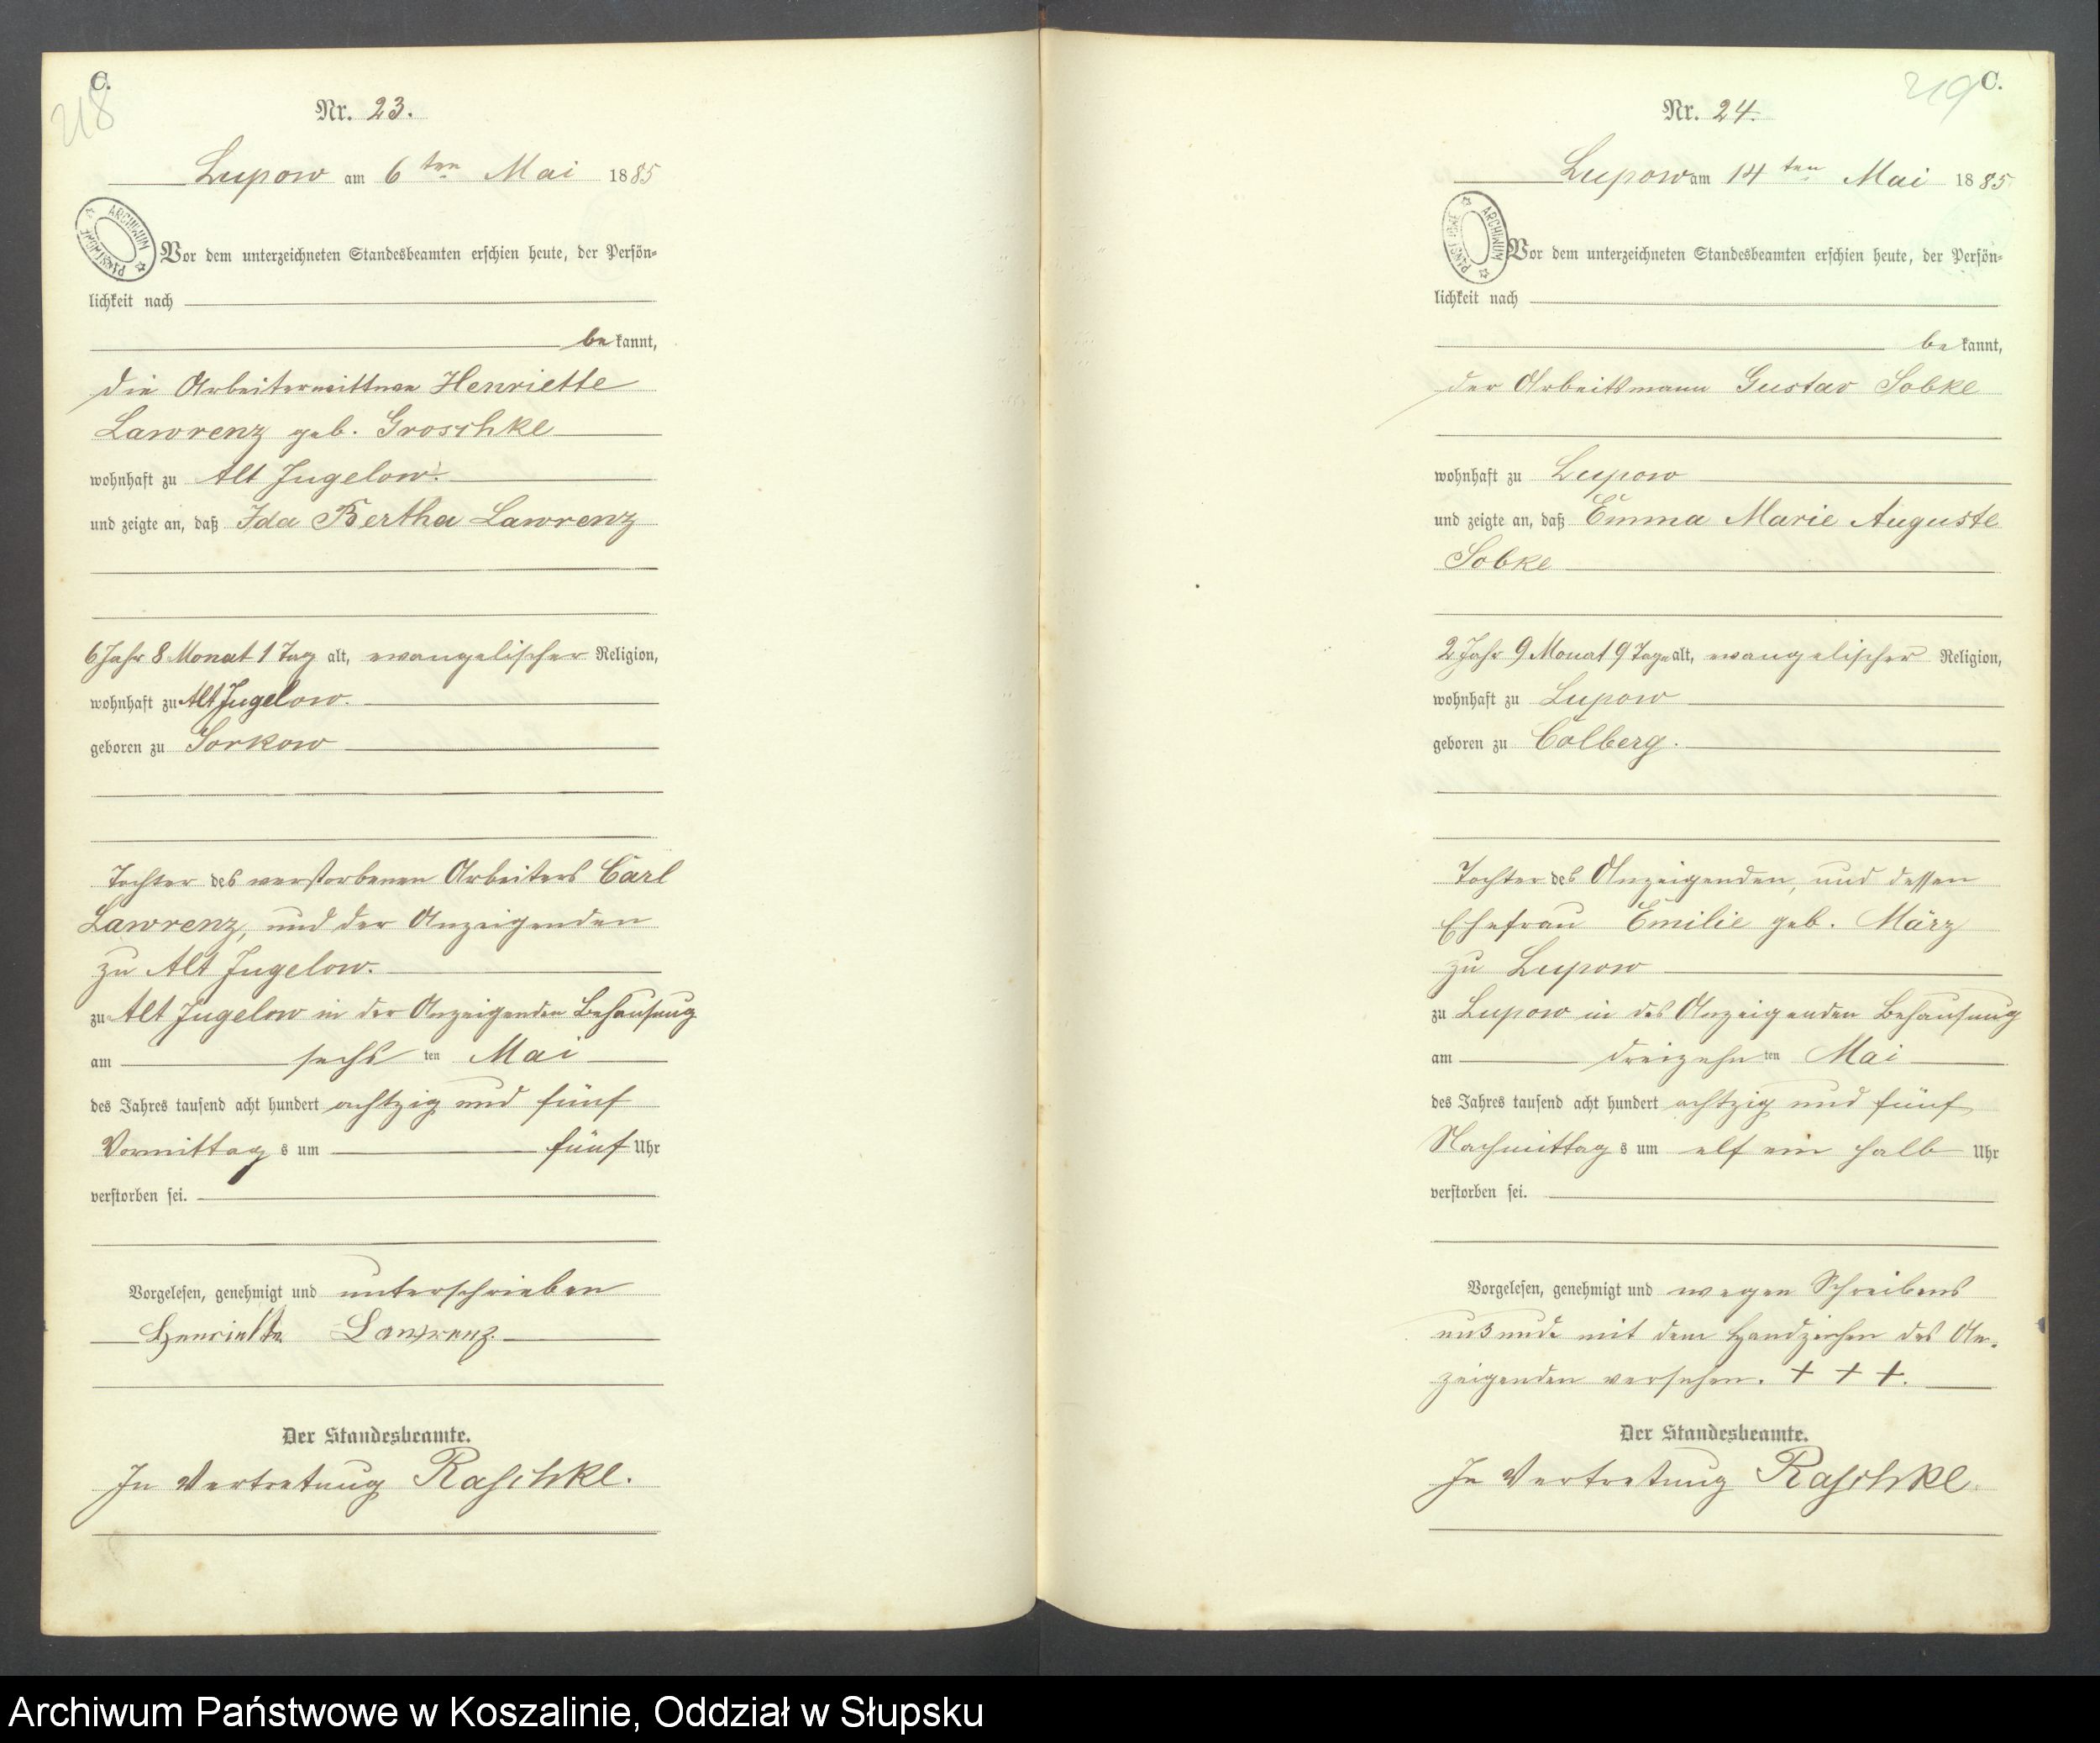 C.
218
Nr. 23.
Lupow am 6ten Mai 1885
ARCHIWUM PAŃSTWOWE
Vor dem unterzeichneten Standesbeamten erschien heute, der Persön-
lichkeit nach
bekannt,
die Arbeiterwittwe Henriette
Lawrenz geb. Groschke
wohnhaft zu Alt Jugelow.
und zeigte an, daß Ida Bertha Lawrenz
6 Jahr 8 Monat 1 Tag alt, evangelischer Religion,
wohnhaft zu Alt Jugelow.
geboren zu Sorkow
Tochter des verstorbenen Arbeiters Carl
Lawrenz, und der Anzeigenden
zu Alt Jugelow.
zu Alt Jugelow in der Anzeigenden Behausung
am sechsten Mai
des Jahres tausend acht hundert achtzig und fünf
Vormittags um fünf Uhr
verstorben sei.
Vorgelesen, genehmigt und unterschrieben
Henriette Lawrenz.
Der Standesbeamte.
In Vertretung Raschke.
C.
219
Nr. 24.
Lupow am 14ten Mai 1885
ARCHIWUM PAŃSTWOWE
Vor dem unterzeichneten Standesbeamten erschien heute, der Persön-
lichkeit nach
bekannt,
der Arbeitsmann Gustav Sobke
wohnhaft zu Lupow
und zeigte an, daß Emma Marie Auguste
Sobke
2 Jahr 9 Monat 9 Tage alt, evangelischer Religion,
wohnhaft zu Lupow
geboren zu Colberg.
Tochter des Anzeigenden, und dessen
Ehefrau Emilie geb. März
zu Lupow
zu Lupow in des Anzeigenden Behausung
am dreizehnten Mai
des Jahres tausend acht hundert achtzig und fünf
Nachmittags um elf ein halb Uhr
verstorben sei.
Vorgelesen, genehmigt und wegen Schreibens
mit dem Handzeichen des An-
zeigenden versehen. + + +.
Der Standesbeamte.
In Vertretung Raschke.
Archiwum Państwowe w Koszalinie, Oddział w Słupsku